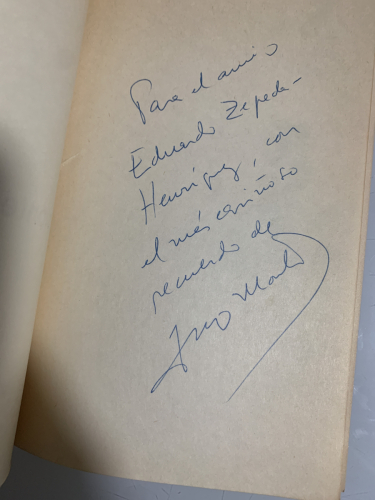 Para el amigo
Eduardo Zepeda-
Henríquez, con
el más cariñoso
recuerdo de